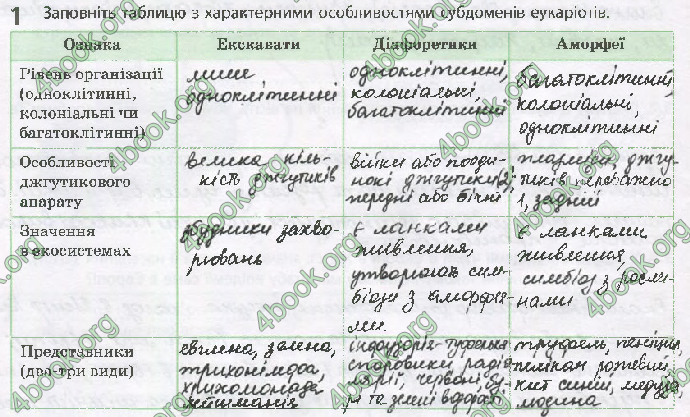 1 Заповніть таблицю з характерними особливостями субдоменів еукаріотів.
Ознака Екскавати Діафоретики Аморфеї
Рівень організації
(одноклітинні,
колоніальні чи
багатоклітинні)
лише
одноклітинні
одноклітинні,
колоніальні,
багатоклітинні
багатоклітинні
колоніальні,
одноклітинні
Особливості
джгутикового
апарату
велика кіль-
кість джгутиків
війки або пооди-
нокі джгутики, 2,
передні або бічні
джгу-
тиків переважно
1, задній
Значення
в екосистемах
збудники захво-
рювань
є ланками
живлення,
утворюють сим-
біози з аморфея-
ми
є ланками
живлення,
симбіоз з росли-
нами
Представники
(два-три види)
евглена зелена,
трихонімфа,
трихомонада,
лейшманія
інфузорія-туфелька
радіо
лярії, червоні, бу-
рі та зелені водорості
трюфель, пеніцил,
пелікан рожевий,
кит синій, медуза,
людина
4book.org
4book.org
4book.org
4book.org
4book.org
4book.org
4book.org
4book.org